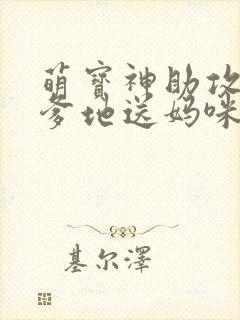 萌寶神助攻
爹地送媽咪
基尔澤